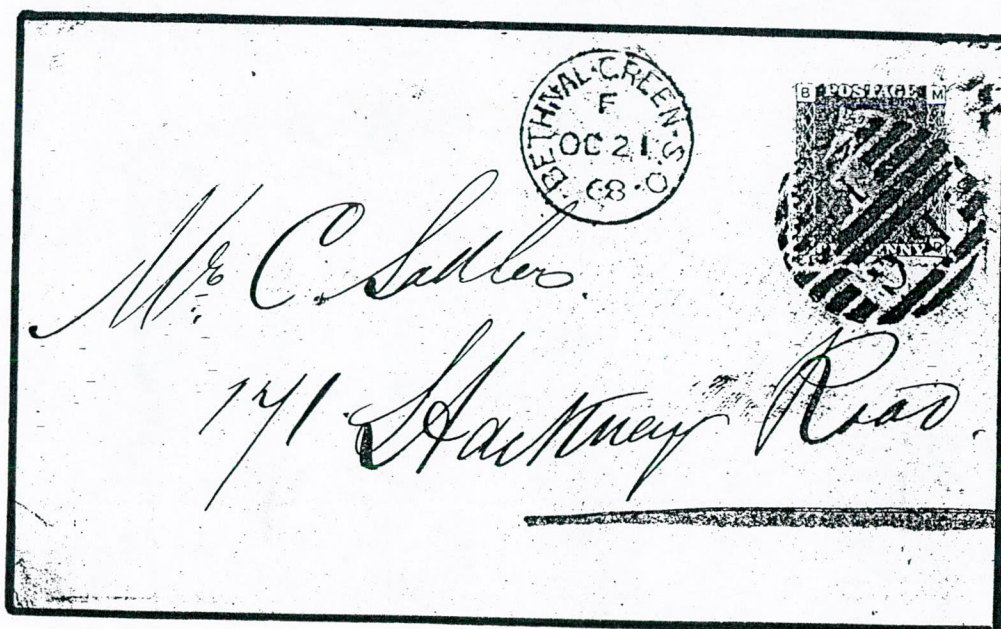 BETHNAL·GREEN·S.O
F
OC 21
68
B POSTAGE M
Mr. C. Sadler.
171 Hackney Road.